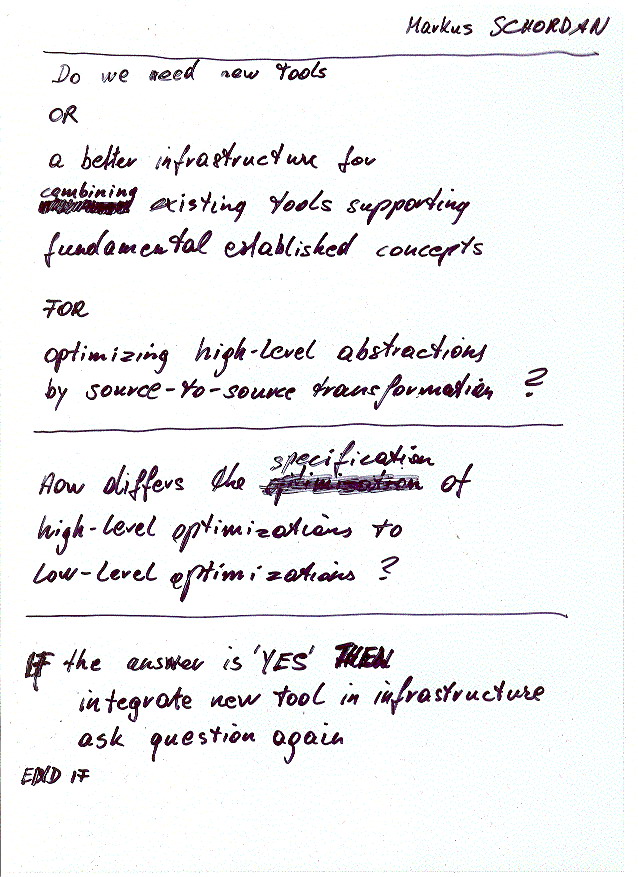 Markus SCHORDAN
Do we need new tools
OR
a better infrastructure for
combining existing tools supporting
fundamental established concepts
FOR
optimizing high-level abstractions
by source-to-source transformation ?
How differs the specification of
high-level optimizations to
low-level optimizations ?
IF the answer is 'YES' THEN
integrate new tool in infrastructure
ask question again
END IF